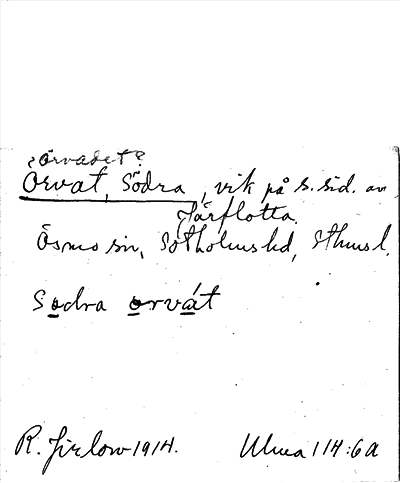 ? Örvadet?
Örvat, Södra, vik på s. sid. av
Järflotta.
Ösmo sn, Sotholms hd, Sthms l.
Sodra orvát
R. Jirlow 1914. Ulma 114:6a